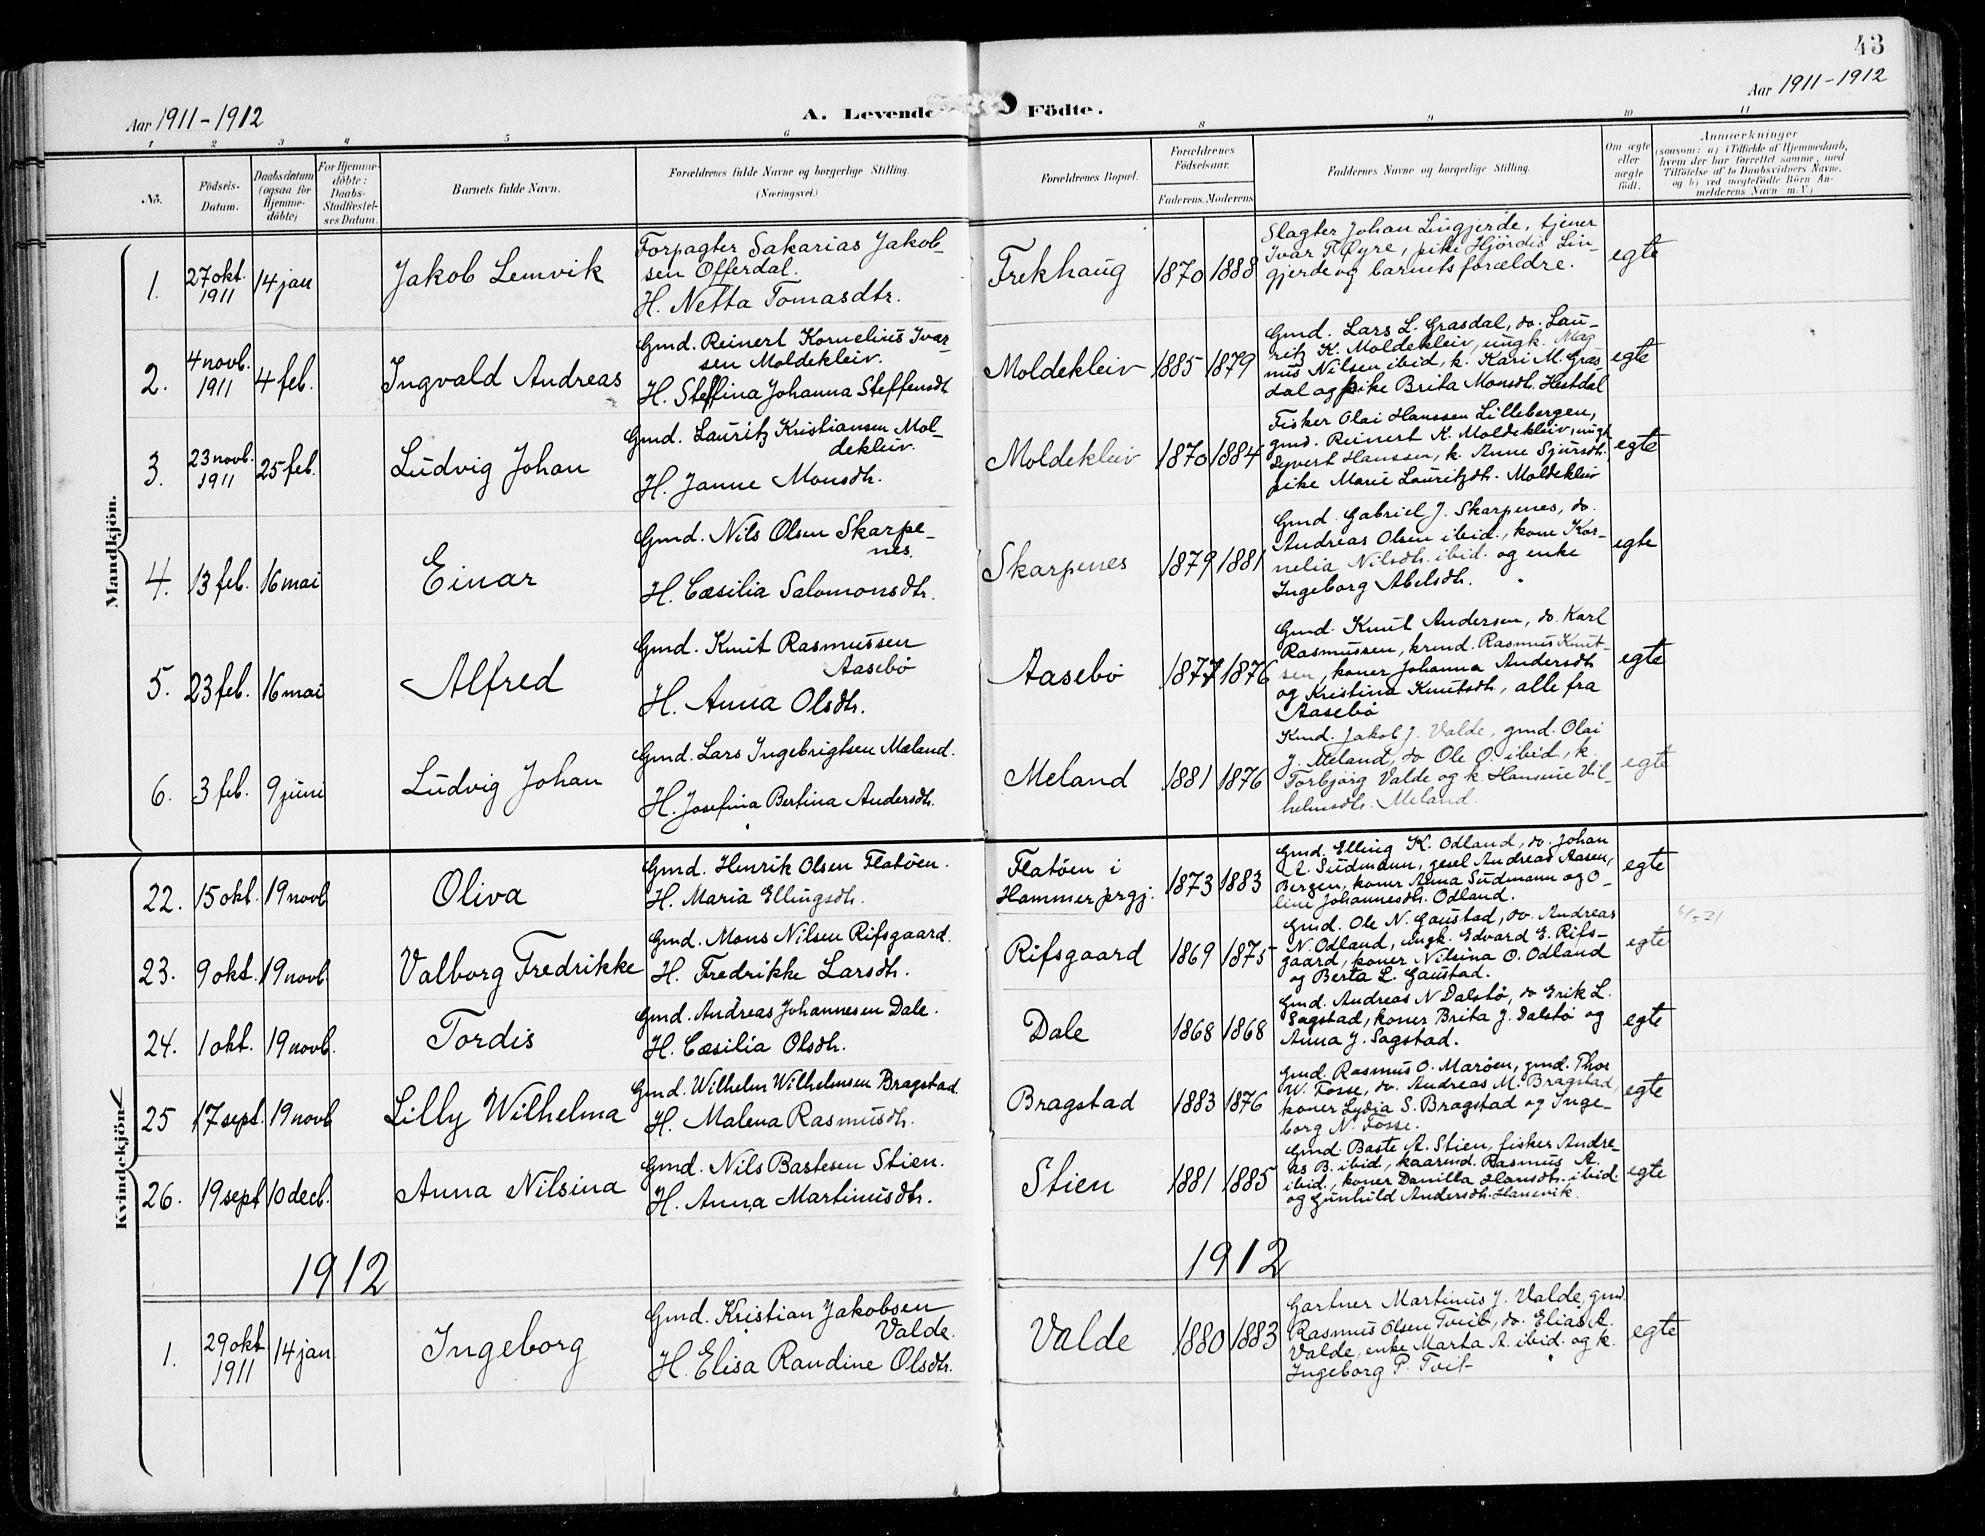 43
Aar 1911-1912
A. Levende Födte.
Aar 1911-1912
1 2 3 4 5 6 8 9 10 11
No.
Födsels-
Datum.
Daabsdatum
(ogsaa for
Hjemme-
döbte)
For Hjemme-
döbte:
Daabs-
Stadfæstel-
ses Datum.
Barnets fulde Navn.
Forældrenes fulde Navne og borgerlige Stilling.
(Næringsvei.)
Forældrenes Bopæl.
Forældrenes
Födselsaar.
Faderens. Moderens
Faddernes Navne og borgerlige Stilling.
Om ægte
eller
uægte
födt.
Anmærkninger
(saasom: a) i Tilfælde af Hjemmedaab,
hvem der har forrettet samme, med
Tilföielse af to Daabsvidners Navne,
og b) ved uægtefödte Börn An-
melderens Navn m. V.)
Mandkjön.
1.
27 okt.
1911
14 jan
Jakob Lemvik
Forpagter Sakarias Jakob-
sen Offerdal.
H. Netta Tomasdtr.
Frekhaug
1870 1888
Slagter Johan Lingjerde, tjener
Ivar T. Øyre, pike Hjördis Lin-
gjerde og barnets forældre.
egte
2.
4 novb.
1911
4 feb.
Ingvald Andreas
Gmd. Reinert Kornelius Ivar-
sen Moldekleiv.
H. Steffina Johanna Steffensdt
Moldekleiv
1885 1879
Gmd. Lars L. Grasdal, do. Lau-
ritz K. Moldekleiv, ungk. Mag
nus Nilsen ibid, k. Kari M. Gras-
dal og pike Brita Monsdt. Hestdal
egte
3.
23 novb.
1911
25 feb.
Ludvig Johan
Gmd. Lauritz Kristiansen Mol-
dekleiv.
H. Janne Monsdtr.
Moldekleiv
1870 1884
Fisker Olai Hanssen Lillebergen,
gmd. Reinert K. Moldekleiv, ungk
Syvert Hanssen, k. Anne Sjursdtr.
pike Marie Lauritzdtr. Moldekleiv
egte
4.
13 feb.
16 mai
Einar
Gmd. Nils Olsen Skarpe-
nes.
H. Cæsilia Salomonsdtr.
Skarpenes
1879 1881
Gmd. Gabriel J. Skarpenes, do.
Andreas Olsen ibid., kone Kor-
nelia Nilsdtr. ibid. og enke
Ingeborg Abelsdtr.
egte
5.
23 feb.
16 mai
Alfred
Gmd. Knut Rasmussen
Aasebø
H. Anna Olsdtr.
Aasebø
1877 1876
Gmd. Knut Andersen, do. Karl
Rasmussen, krmd. Rasmus Knut-
sen, koner Johanna Andersdtr
og Kristina Knutsdtr, alle fra
Aasebø
egte
6.
3 feb.
9 juni
Ludvig Johan
Gmd. Lars Ingebrigtsen Meland.
H. Josefina Bertina Andersdtr.
Meland
1881 1876
Kmd. Jakob J. Valde, gmd. Olai
J. Meland, do Ole O. ibid., k.
Torbjörg Valde og k. Hansine Vil-
helmsdtr. Meland.
egte
Kvindekjön
22.
15 okt.
19 novb
Oliva
Gmd. Henrik Olsen Flatøen.
H. Maria Ellingsdtr.
Flatøen i
Hammer prgj.
1873 1883
Gmd. Elling K. Odland, do. Johan
A. Sudmann, gesel Andreas Aasen,
Bergen, koner Anna Sudmann og O-
line Johannesdtr. Odland.
egte
23.
9 okt.
19 novb.
Valborg Fredrikke
Gmd. Mons Nilsen Rifsgaard.
H. Fredrikke Larsdtr.
Rifsgaard
1869 1875
Gmd. Ole N. Gaustad, do. Andreas
N. Odland, ungk. Edvard E. Rifs-
gaard, koner Nilsina O. Odland
og Berta L. Gaustad.
egte
24.
1 okt.
19 novb.
Tordis
Gmd. Andreas Johannesen Dale.
H. Cæsilia Olsdtr.
Dale
1868 1868
Gmd. Andreas N Dalstø, do Erik L.
Sagstad, koner Brita J. Dalstø og
Anna J. Sagstad.
egte
25
17 sept.
19 novb
Lilly Wilhelma
Gmd. Wilhelm Wilhelmsen Bragstad
H. Malena Rasmusdtr.
Bragstad
1883 1876
Gmd. Rasmus O. Marøen, gmd. Thor
W. Fosse, do. Andreas M. Bragstad,
koner Lydia S. Bragstad og Inge-
borg N. Fosse.
egte
26.
19 sept
10 decb.
Anna Nilsina
Gmd. Nils Bastesen Stien.
H. Anna Martinusdtr.
Stien
1881 1885
Gmd. Baste A. Stien, fisker Andre-
as B. ibid, kaarmd. Rasmus A.
ibid., koner Danilla Hansdtr. ibid
og Gunhild Andersdtr. Hanevik.
egte
1912
1912
1.
29 okt
1911
14 jan
Ingeborg
Gmd. Kristian Jakobsen
Valde.
H. Elisa Randine Olsdtr.
Valde
1880 1883
Gartner Martinus J. Valde, gmd.
Rasmus Olsen Tveit, do. Elias A.
Valde, enke Marta A. ibid. og k.
Ingeborg P. Tveit
egte